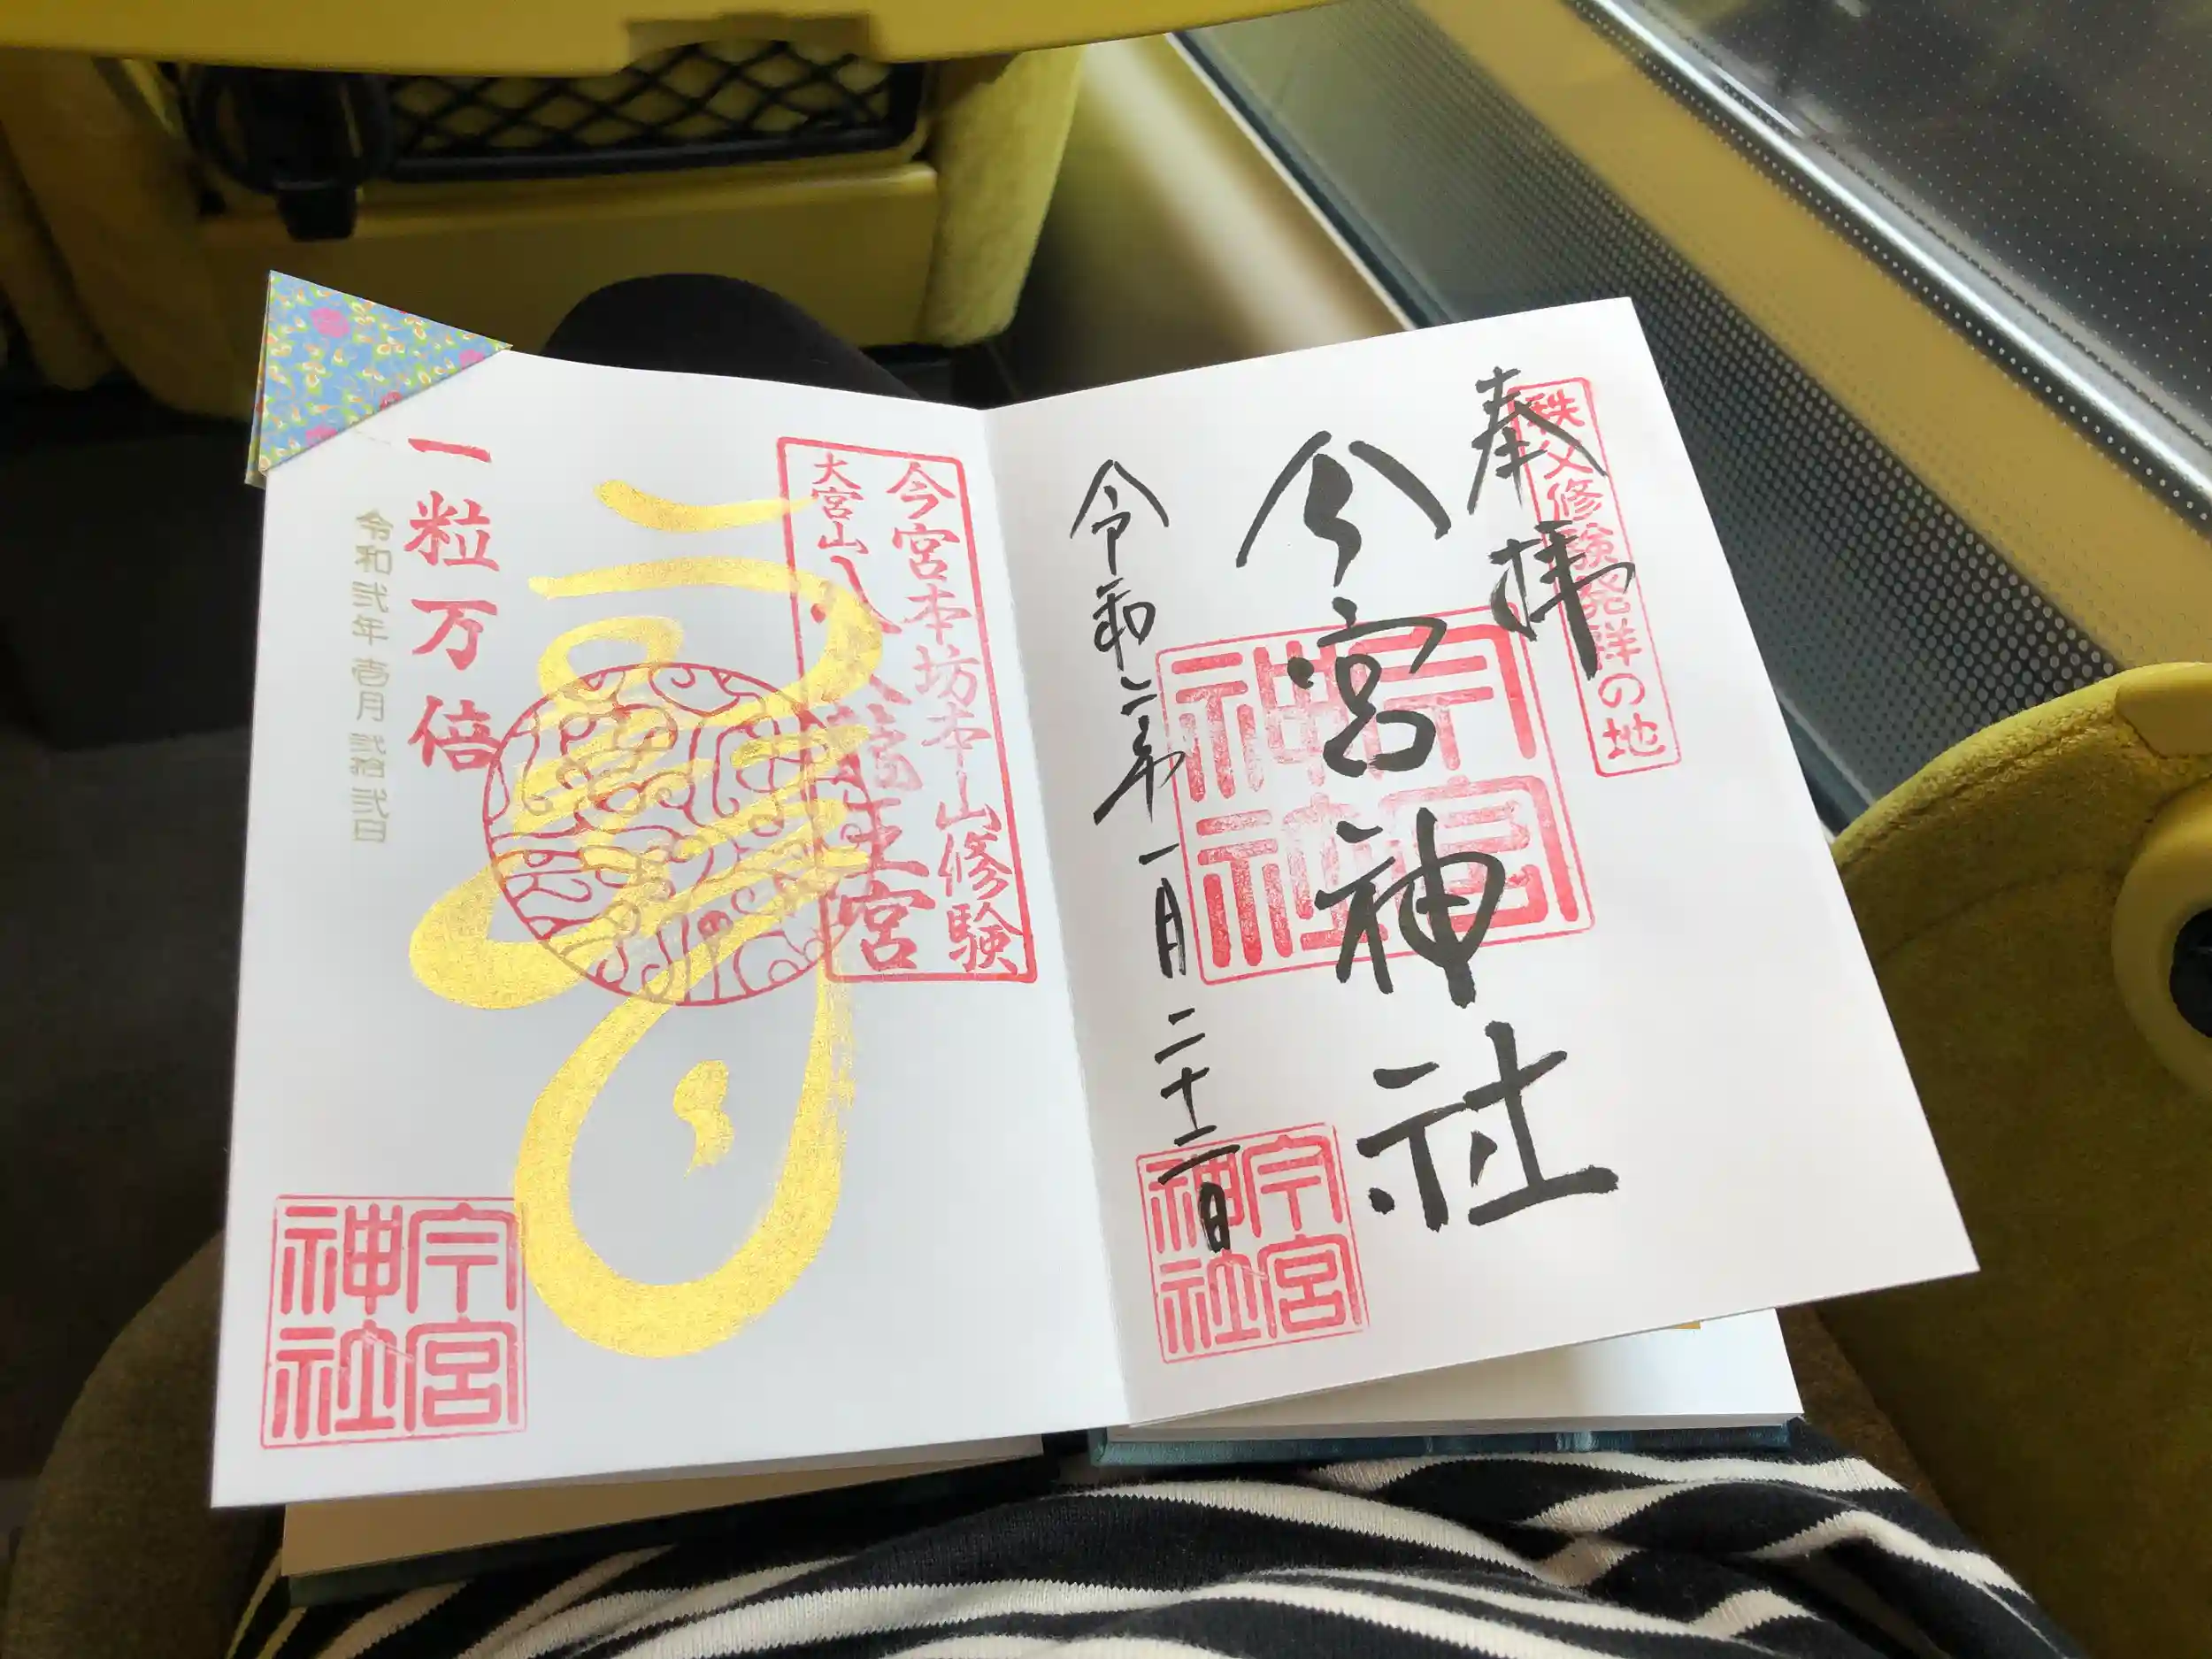 秩父修験発祥の地
奉拝
今宮神社
今宮神社
令和二年一月二十二日
今宮神社
今宮本坊本山修験
大宮山八大龍王宮
寿
一粒万倍
令和弐年壱月弐拾弐日
今宮神社